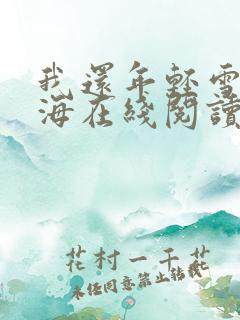 我還年輕雪
海在綫閱讀
花村一千花
未經同意禁止轉載